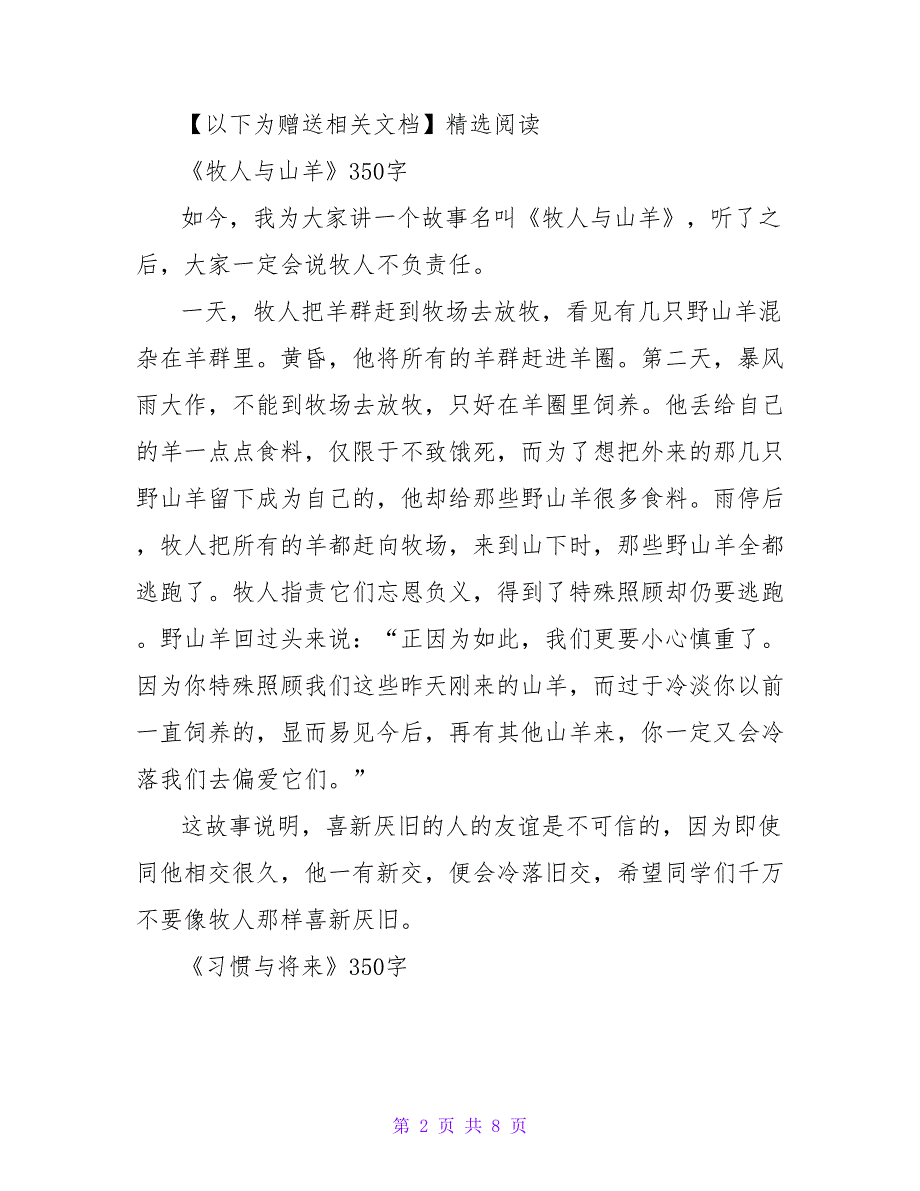 【以下为赠送相关文档】精选阅读
《牧人与山羊》350字
如今，我为大家讲一个故事名叫《牧人与山羊》，听了之
后，大家一定会说牧人不负责任。
一天，牧人把羊群赶到牧场去放牧，看见有几只野山羊混
杂在羊群里。黄昏，他将所有的羊群赶进羊圈。第二天，暴风
雨大作，不能到牧场去放牧，只好在羊圈里饲养。他丢给自己
的羊一点点食料，仅限于不致饿死，而为了想把外来的那几只
野山羊留下成为自己的，他却给那些野山羊很多食料。雨停后
，牧人把所有的羊都赶向牧场，来到山下时，那些野山羊全都
逃跑了。牧人指责它们忘恩负义，得到了特殊照顾却仍要逃跑
。野山羊回过头来说：“正因为如此，我们更要小心慎重了。
因为你特殊照顾我们这些昨天刚来的山羊，而过于冷淡你以前
一直饲养的，显而易见今后，再有其他山羊来，你一定又会冷
落我们去偏爱它们。”
这故事说明，喜新厌旧的人的友谊是不可信的，因为即使
同他相交很久，他一有新交，便会冷落旧交，希望同学们千万
不要像牧人那样喜新厌旧。
《习惯与将来》350字
第 2 页 共 8 页